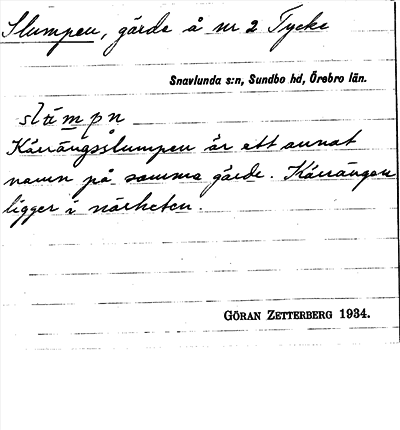 Slumpen, gärde å nr 2 Tycke
Snavlunda s:n, Sundbo hd, Örebro län.
slu̇mpn
Kärrängsslumpen är ett annat
namn på samma gärde. Kärrängen
ligger i närheten.
GÖRAN ZETTERBERG 1934.